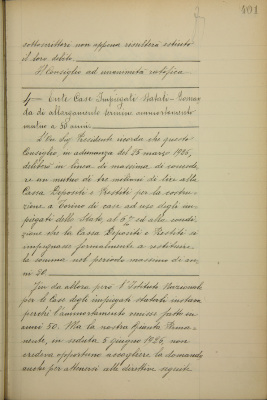 401
sottoscrittori non appena risulterà estinto
il loro debito.
Il Consiglio ad unanimità ratifica.
4 — Ente Case Impiegati Statali - Doman-
da di allargamento termine ammortamento
mutuo a 50 anni.
L'On. Sig. Presidente ricorda che questo
Consiglio, in adunanza del 28 marzo 1926,
deliberò in linea di massima di concede-
re un mutuo di tre milioni di lire alla
Cassa Depositi e Prestiti per la costru-
zione a Torino di case ad uso degli im-
piegati dello Stato, al 6% ed alla condi-
zione che la Cassa Depositi e Prestiti si
impegnasse formalmente a restituire
la somma nel periodo massimo di an-
ni 30.
Fin da allora però l'Istituto Nazionale
per le Case degli impiegati statali insisteva
perchè l'ammortamento venisse fatto in
anni 50. Ma la nostra Giunta Perma-
nente, in seduta 8 giugno 1926, non
credeva opportuno accogliere la domanda
anche per attenersi alla direttiva seguita